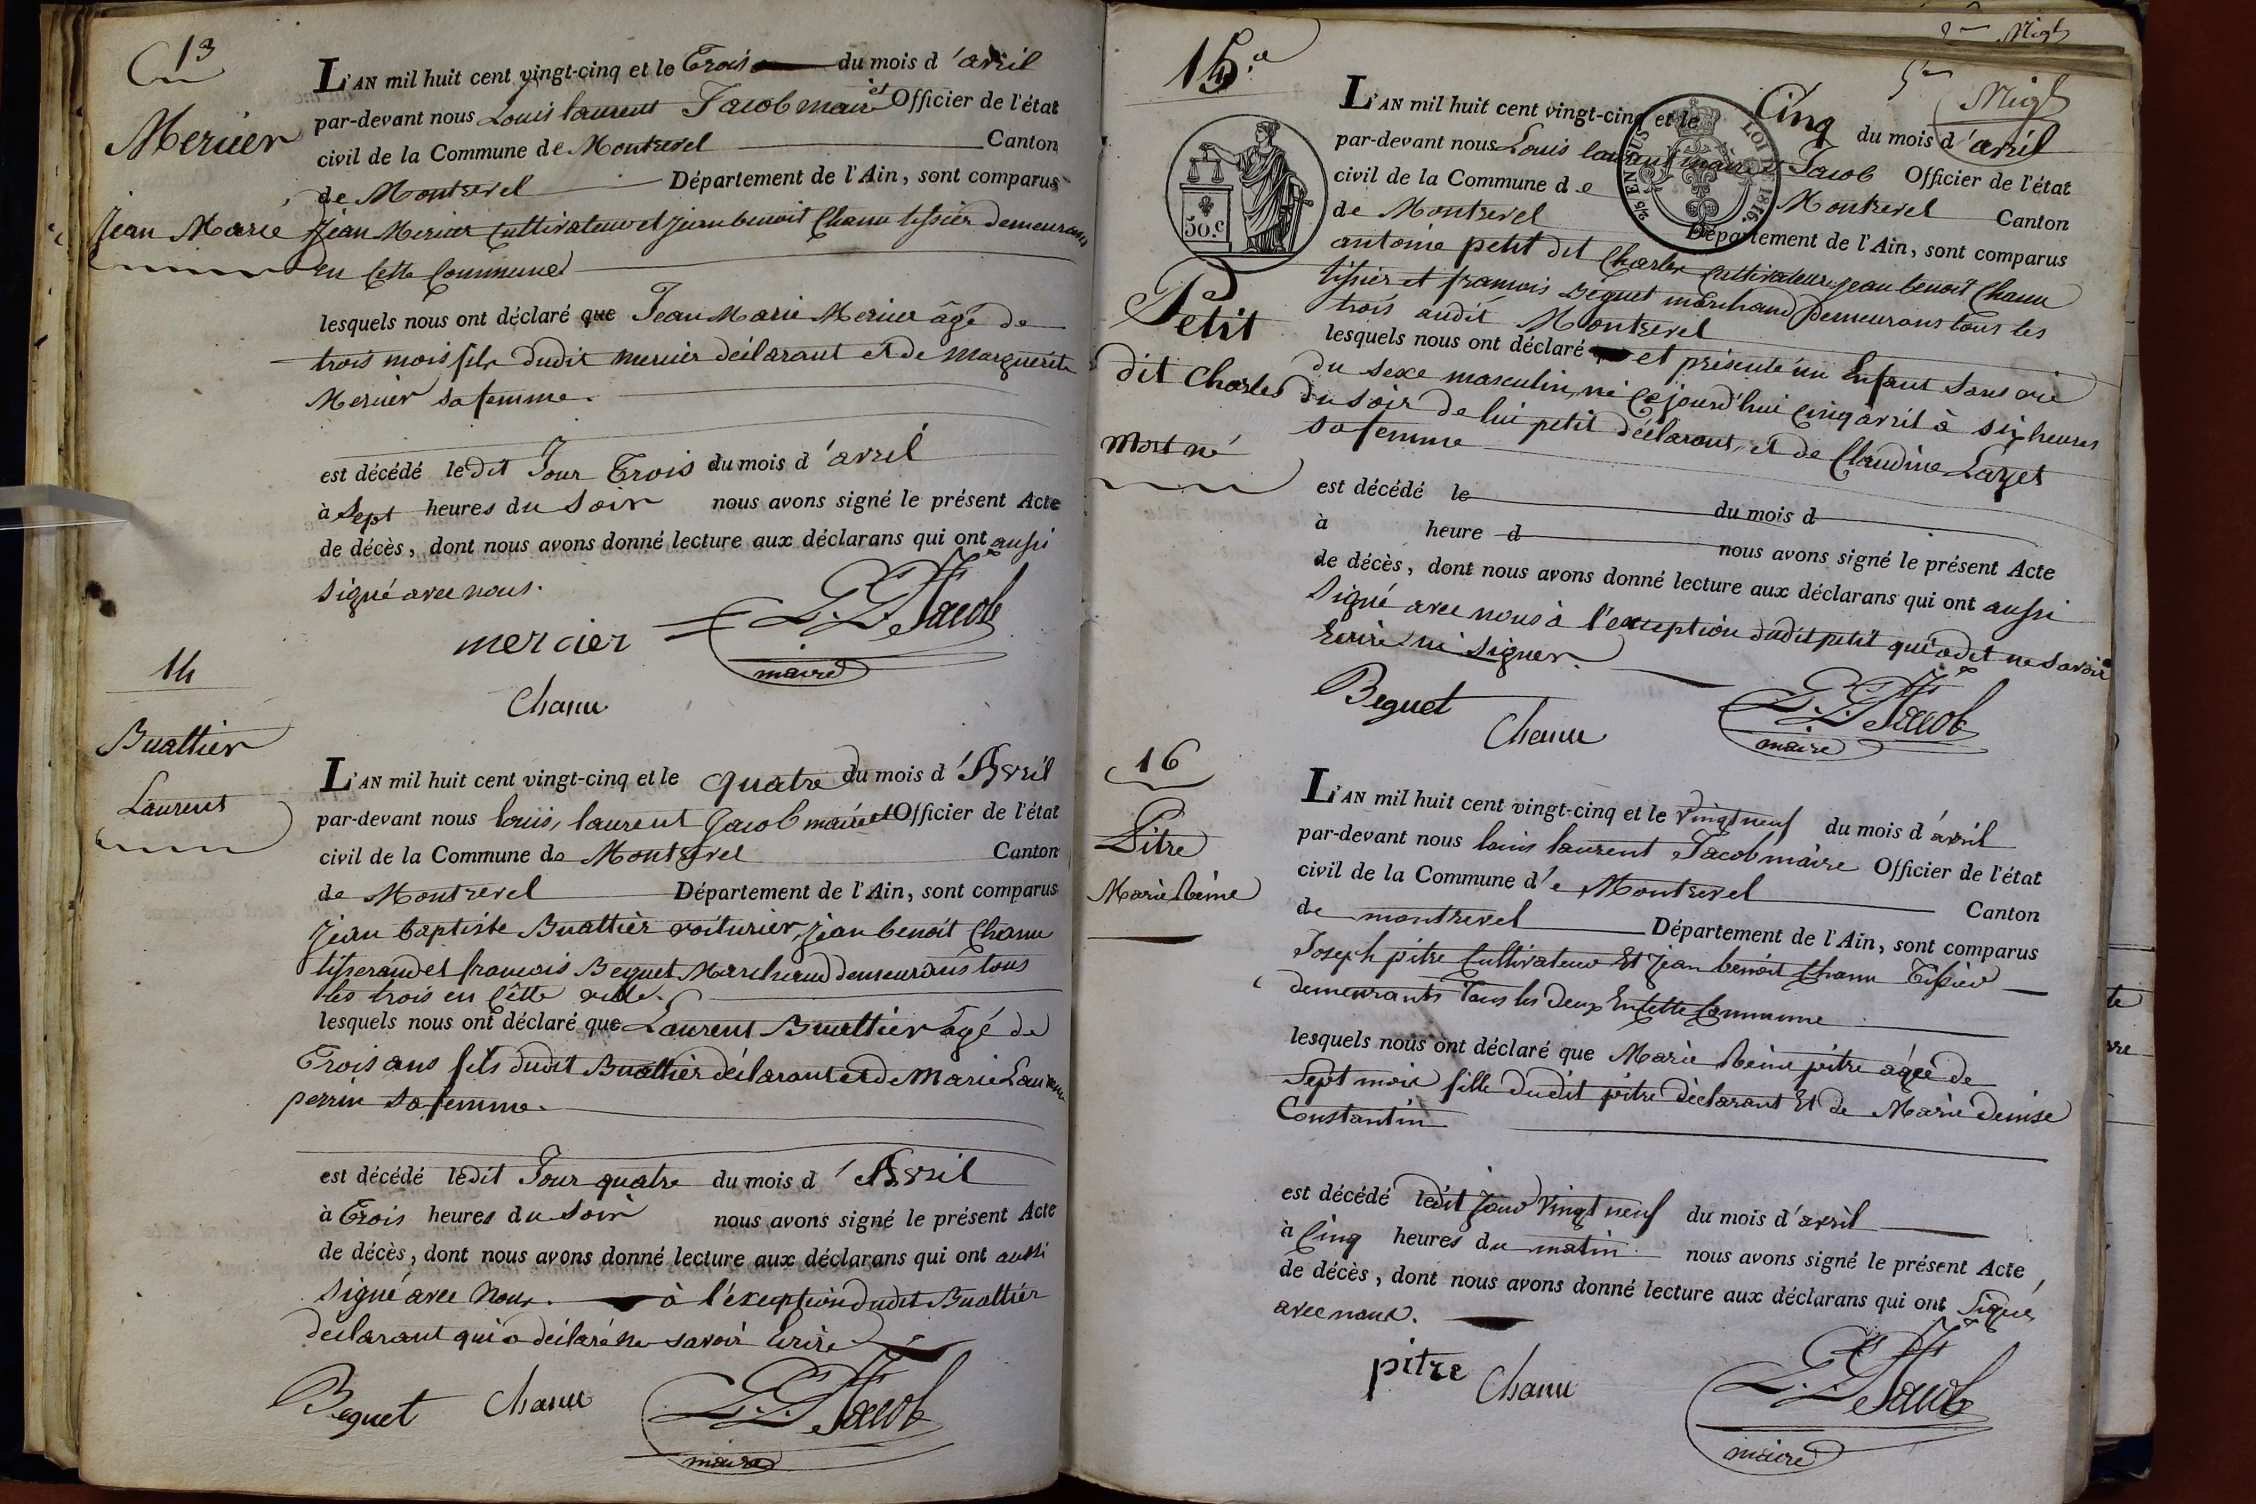 13
Mercier
Jean Marie
L'AN mil huit cent vingt-cinq et le Trois du mois d'avril
par-devant nous Louis laurent Jacob maire et Officier de l'état
civil de la Commune de Montrevel Canton
de Montrevel Département de l'Ain, sont comparus
Jean Mercier Cultivateur et jean benoit Chanu tissier demeurans
en Cette Commune
lesquels nous ont déclaré que Jean Marie Mercier âgé de
trois mois fils dudit mercier déclarant et de marguerite
Mercier sa femme.
est décédé ledit Jour Trois du mois d'avril
à Sept heures du Soir nous avons signé le présent Acte
de décès, dont nous avons donné lecture aux déclarans qui ont aussi
Signé avec nous.
mercier L. L. Jacob
maire
Chanu
14
Buattier
Laurent
L'AN mil huit cent vingt-cinq et le quatre du mois d'Avril
par-devant nous louis, laurent Jacob maire et Officier de l'état
civil de la Commune de Montrevel Canton
de Montrevel Département de l'Ain, sont comparus
Jean baptiste Buattier voiturier, jean benoit Chanu
tisserand et francois Beguet Marchand demeurans tous
les trois en Cette ville.
lesquels nous ont déclaré que Laurent Buattier âgé de
Trois ans fils dudit Buattier déclarant et de Marie
perrin sa femme.
est décédé ledit Jour quatre du mois d'Avril
à Trois heures du Soir nous avons signé le présent Acte
de décès, dont nous avons donné lecture aux déclarans qui ont aussi
Signé avec Nous. à l'exception dudit Buattier
declarant qui a déclaré ne savoir Ecrire
Beguet Chanu L. L. Jacob
maire
15
50.C
Petit
dit Charles
Mort né
L'AN mil huit cent vingt-cinq et le Cinq du mois d'avril
par-devant nous Louis laurent maire Jacob Officier de l'état
civil de la Commune de Montrevel Canton
de Montrevel Département de l'Ain, sont comparus
antoine petit dit Charles Cultivateur jean benoit Chanu
tissier et francois Beguet marchand demeurans tous les
trois audit Montrevel
lesquels nous ont déclaré et présenté un Enfant Sans vie
du sexe masculin, né Cejourd'hui cinq avril à six heures
du soir de lui petit déclarant, et de Claudine Layet
sa femme
est décédé le du mois d
à heure d nous avons signé le présent Acte
de décès, dont nous avons donné lecture aux déclarans qui ont aussi
Signé avec nous à l'exception dudit petit qui a dit ne savoir
Ecrire ni signer.
Beguet Chanu L. L. Jacob
maire
16
Pitre
Marie Reine
L'AN mil huit cent vingt-cinq et le vingt neuf du mois d'avril
par-devant nous louis laurent Jacob maire Officier de l'état
civil de la Commune d'e Montrevel Canton
de montrevel Département de l'Ain, sont comparus
Joseph pitre Cultivateur Et Jean benoit Chanu Tissier
demeurants Tous les deux En Cette Commune
lesquels nous ont déclaré que Marie Reine pitre agée de
Sept mois fille dudit pitre déclarant Et de Marie denise
Constantin
est décédé ledit Jour Vingt neuf du mois d'avril
à Cinq heures du matin nous avons signé le présent Acte
de décès, dont nous avons donné lecture aux déclarans qui ont Signé
avec nous.
pitre Chanu L. L. Jacob
maire